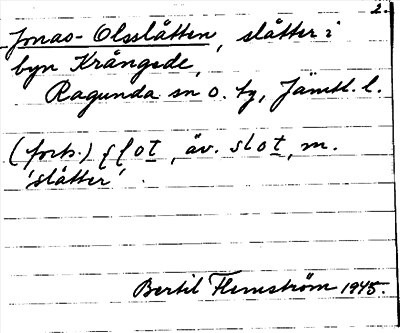 2.
Jonas-Olsslåtten, slåtter i
byn Krångede,
Ragunda sn o. tg, Jämtl. l.
(forts.) ʃḷot, äv. slot, m.
'slåtter'.
Bertil Flemström 1945.